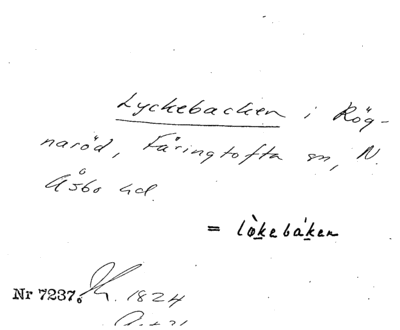 Lyckebacken i Rög-
naröd, Färingtofta sn, N.
Åsbo hd.
= lòkebáken
Nr 7237. 1824